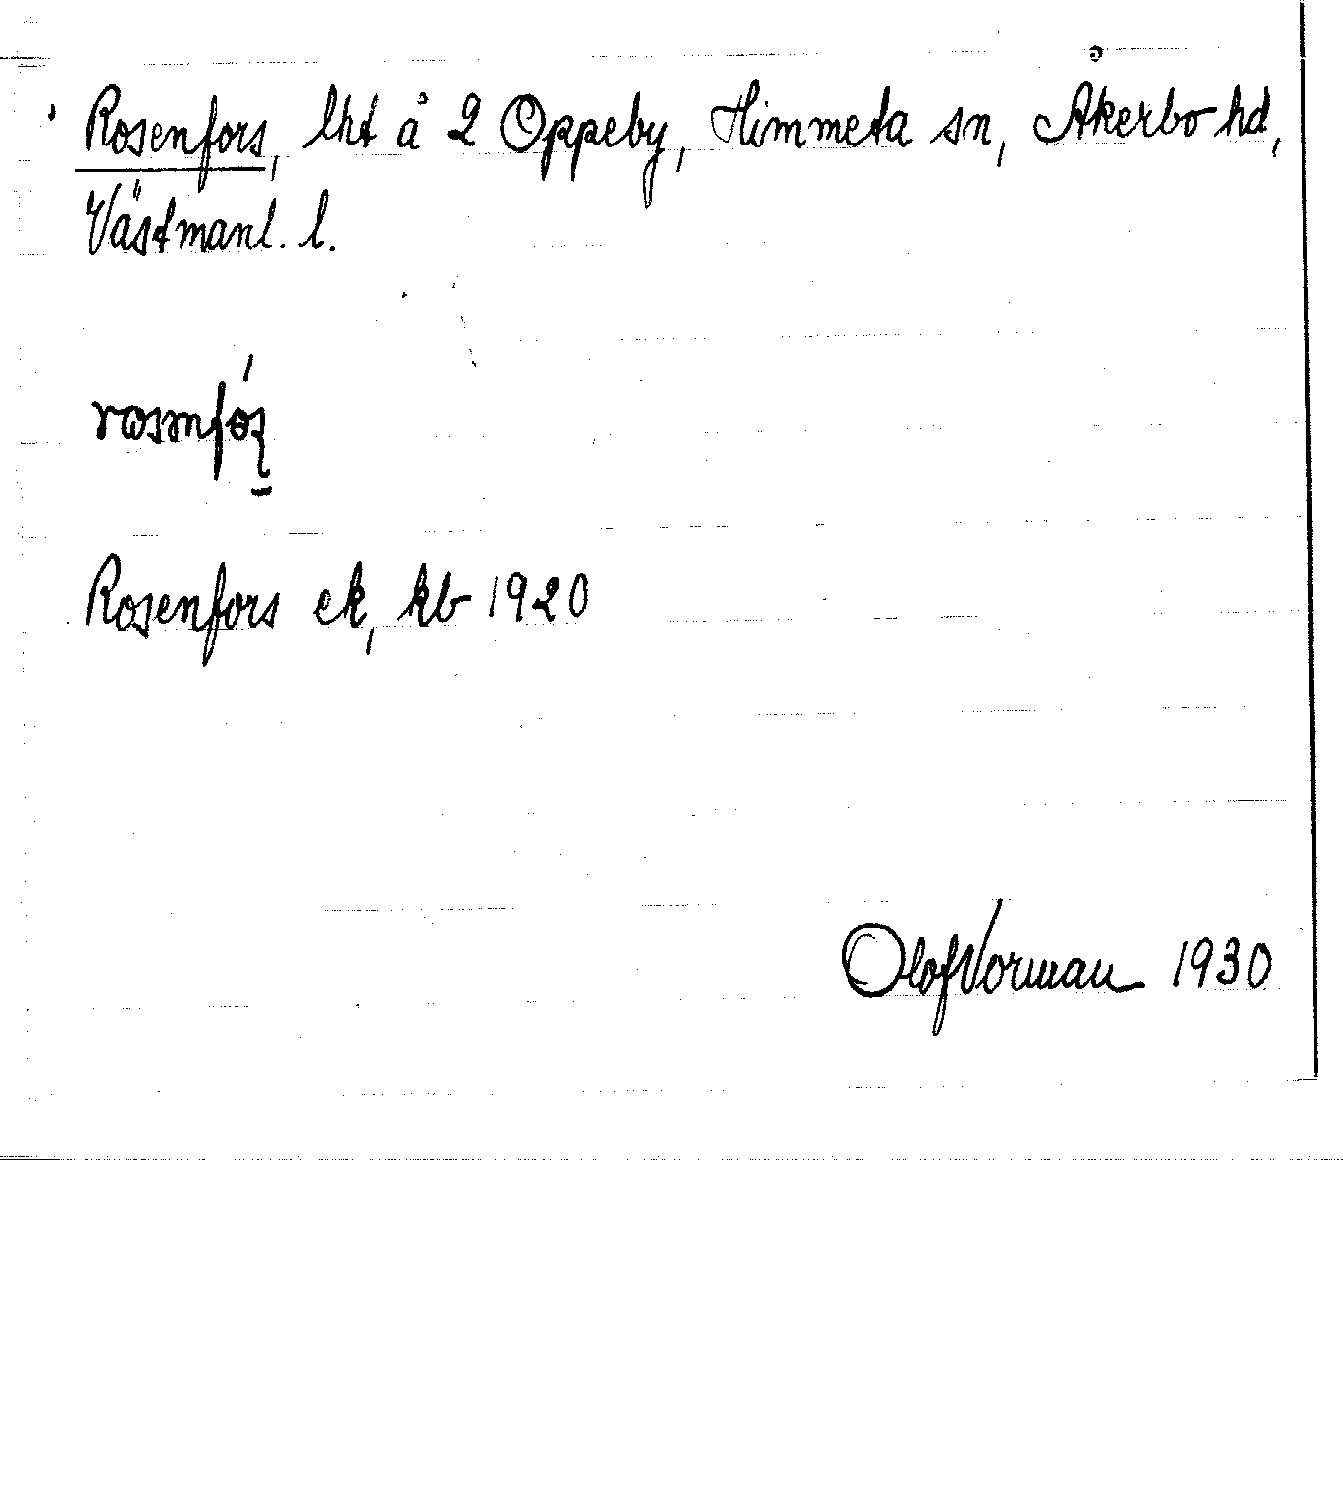 Rosenfors, lht å 2 Oppeby, Himmeta sn, Åkerbo hd,
Västmanl. l.
Rosenfors ek, kb 1920
Olof Vorman 1930